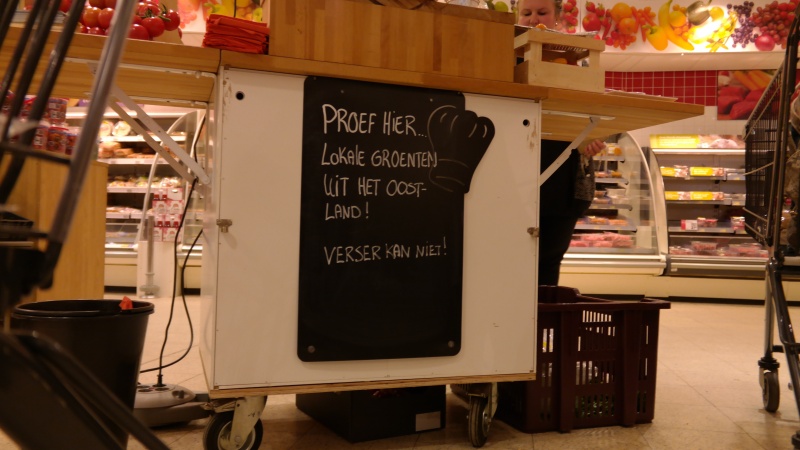 PROEF HIER...
LOKALE GROENTEN
UIT HET OOST-
LAND!
VERSER KAN NIET!